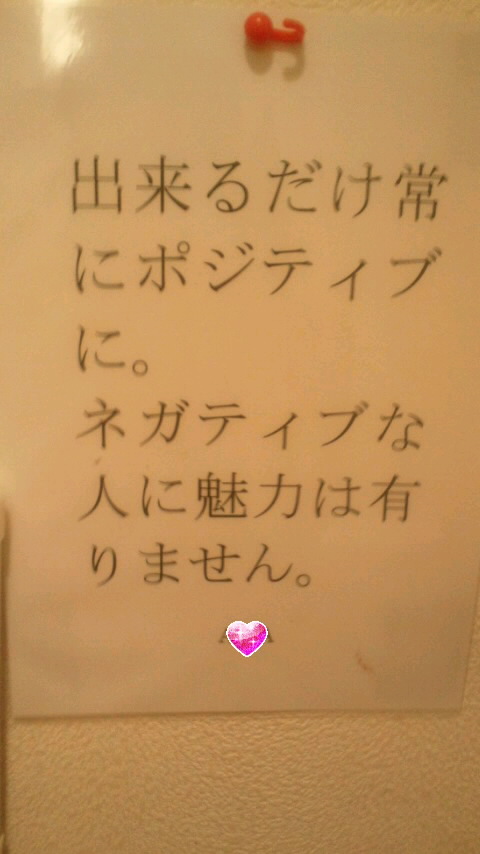 出来るだけ常
にポジティブ
に。
ネガティブな
人に魅力は有
りません。